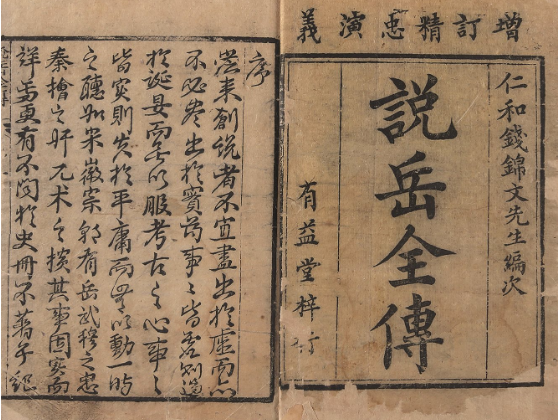 增訂精忠演義
仁和錢錦文先生編次
説岳全傳
有益堂梓行
序
從来創説者不宜盡出於虛而亦
不必尽出於實苟事〻皆虛則過
於誕妄而無以服考古之心事〻
皆實則失於平庸而無以動一時
之聽如宋徽宗朝有岳武穆之忠
秦檜之奸兀术之橫其事固實而
詳焉更有不聞於史冊不著于紀